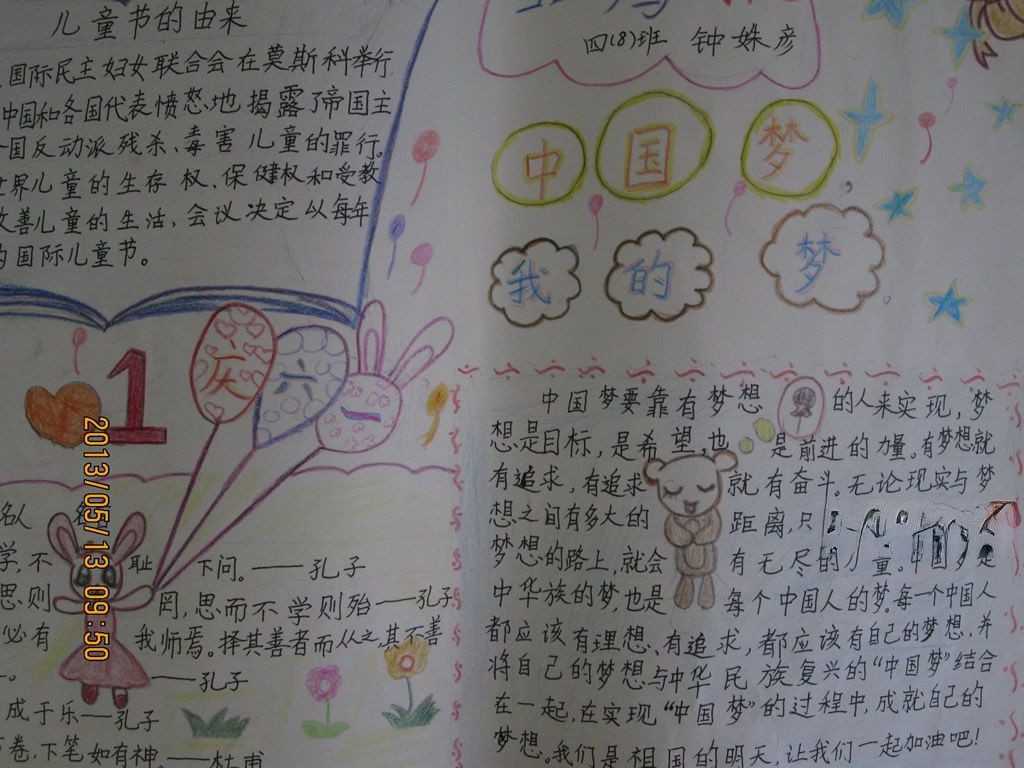 儿童节的由来
国际民主妇女联合会在莫斯科举行
中国和各国代表愤怒地揭露了帝国主
国反动派残杀、毒害儿童的罪行。
世界儿童的生存权、保健权和受教
改善儿童的生活,会议决定以每年
的国际儿童节。
1
庆
六
一
名人名
学,不耻下问。——孔子
思则罔,思而不学则殆——孔子
必有我师焉。择其善者而从之,其不善
——孔子
成于乐——孔子
卷,下笔如有神。——杜甫
四(8)班 钟姝彦
中国梦
我的梦
中国梦要靠有梦想的人来实现,梦
想是目标,是希望,也是前进的力量。有梦想就
有追求,有追求就有奋斗。无论现实与梦
想之间有多大的距离,只
梦想的路上,就会有无尽的力量。中国梦是
中华族的梦,也是每个中国人的梦。每一个中国人
都应该有理想、有追求,都应该有自己的梦想,并
将自己的梦想与中华民族复兴的“中国梦”结合
在一起,在实现“中国梦”的过程中,成就自己的
梦想。我们是祖国的明天,让我们一起加油吧!
2013/05/13 09:50